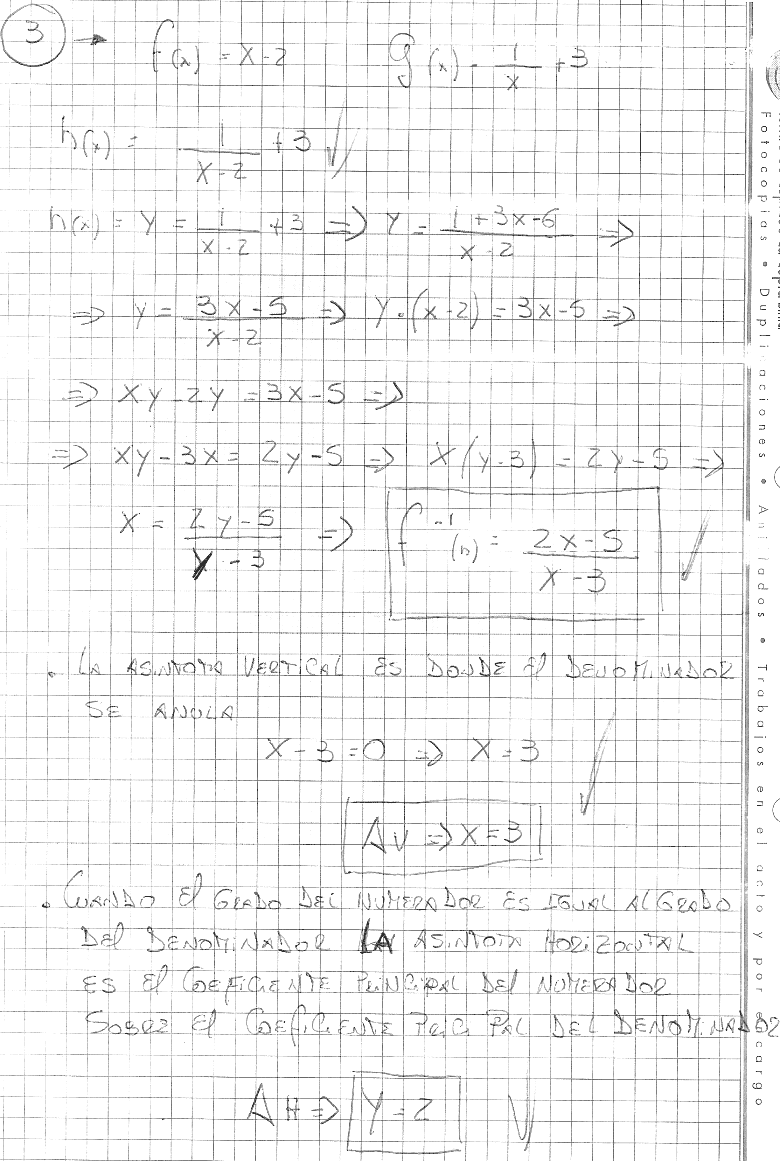 3 → f(x) = x-2 g(x) = 1/x + 3
h(x) = 1/(x-2) + 3 ✓
h(x) = y = 1/(x-2) + 3 ⇒ y = (1+3x-6)/(x-2) ⇒
⇒ y = (3x-5)/(x-2) ⇒ y·(x-2) = 3x-5 ⇒
⇒ xy-2y = 3x-5 ⇒
⇒ xy-3x = 2y-5 ⇒ x(y-3) = 2y-5 ⇒
x = (2y-5)/(y-3) ⇒ f⁻¹(x) = (2x-5)/(x-3) ✓
. LA ASINTOTA VERTICAL ES DONDE El DENOMINADOR
SE ANULA
x-3=0 ⇒ x=3 ✓
AV ⇒ x=3
. CUANDO El GRADO DEL NUMERADOR ES IGUAL AL GRADO
DEl DENOMINADOR LA ASINTOTA HORIZONTAL
ES El COEFICIENTE PRINCIPAL DEl NUMERADOR
SOBRE El COEFICIENTE PRICIPAL DEL DENOMINADOR
AH ⇒ y=2 ✓
Fotocopias • Duplicaciones • Anillados • Trabajos en el acto y por encargo